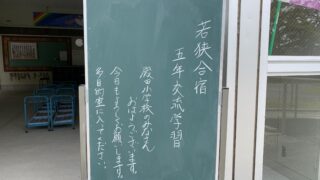 若狭合宿
五年交流学習
殿田小学校のみなさん
おはようございます。
今日もよろしくお願いします。
多目的室に入ってください。